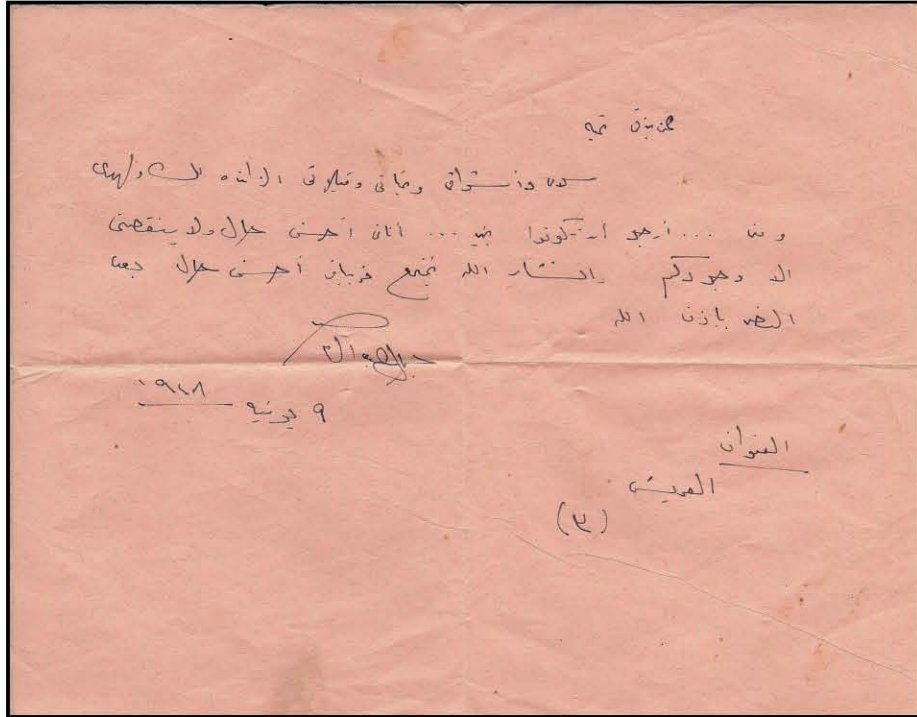 عزيزتى تحيه
سلامى وأشواقى وتحياتى وقبلاتى الزائده لك ولهدى
ومنى ... أرجو أن تكونوا بخير ... أنا فى أحسن حال ولا ينقصنى
الا وجودكم وانشاء الله نجتمع قريبا فى أحسن حال بعد
النصر باذن الله
جمال عبد الناصر
٩ يونيه ١٩٤٨
العنوان
العريش
(٣)